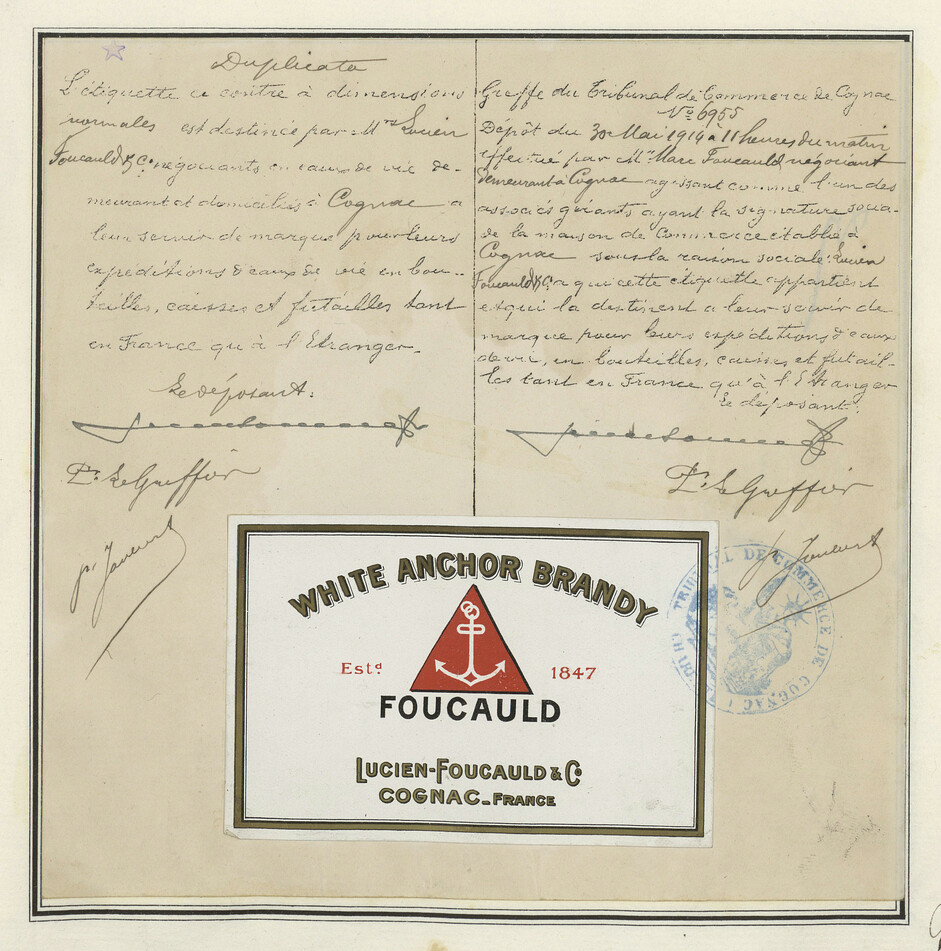 Duplicata
L'étiquette ci contre à dimensions
normales est destinée par Mrs Lucien
Foucauld & Co négociants en eaux de vie de-
meurant et domiciliés à Cognac a
leur servir de marque pour leurs
expéditions d'eaux de vie en bou-
teilles, caisses et futailles tant
en France qu'à l'Etranger.
Le déposant:
Pr Le Greffier
Greffe du Tribunal de Commerce de Cognac
No 6955
Dépôt du 30 Mai 1914 à 11 heures du matin
effectué par Mr Marc Foucauld négociant
demeurant à Cognac agissant comme l'un des
associés gérants ayant la signature socia-
le de la maison de Commerce établie à
Cognac sous la raison sociale: Lucien
Foucauld & Co a qui cette étiquette appartient
et qui la destinent a leur servir de
marque pour leurs expéditions d'eaux
de vie, en bouteilles, caisses et futail-
les tant en France qu'à l'Etranger
Le déposant:
Pr Le Greffier
WHITE ANCHOR BRANDY
Estd 1847
FOUCAULD
LUCIEN-FOUCAULD & Co
COGNAC_FRANCE
TRIBUNAL DE COMMERCE DE COGNAC